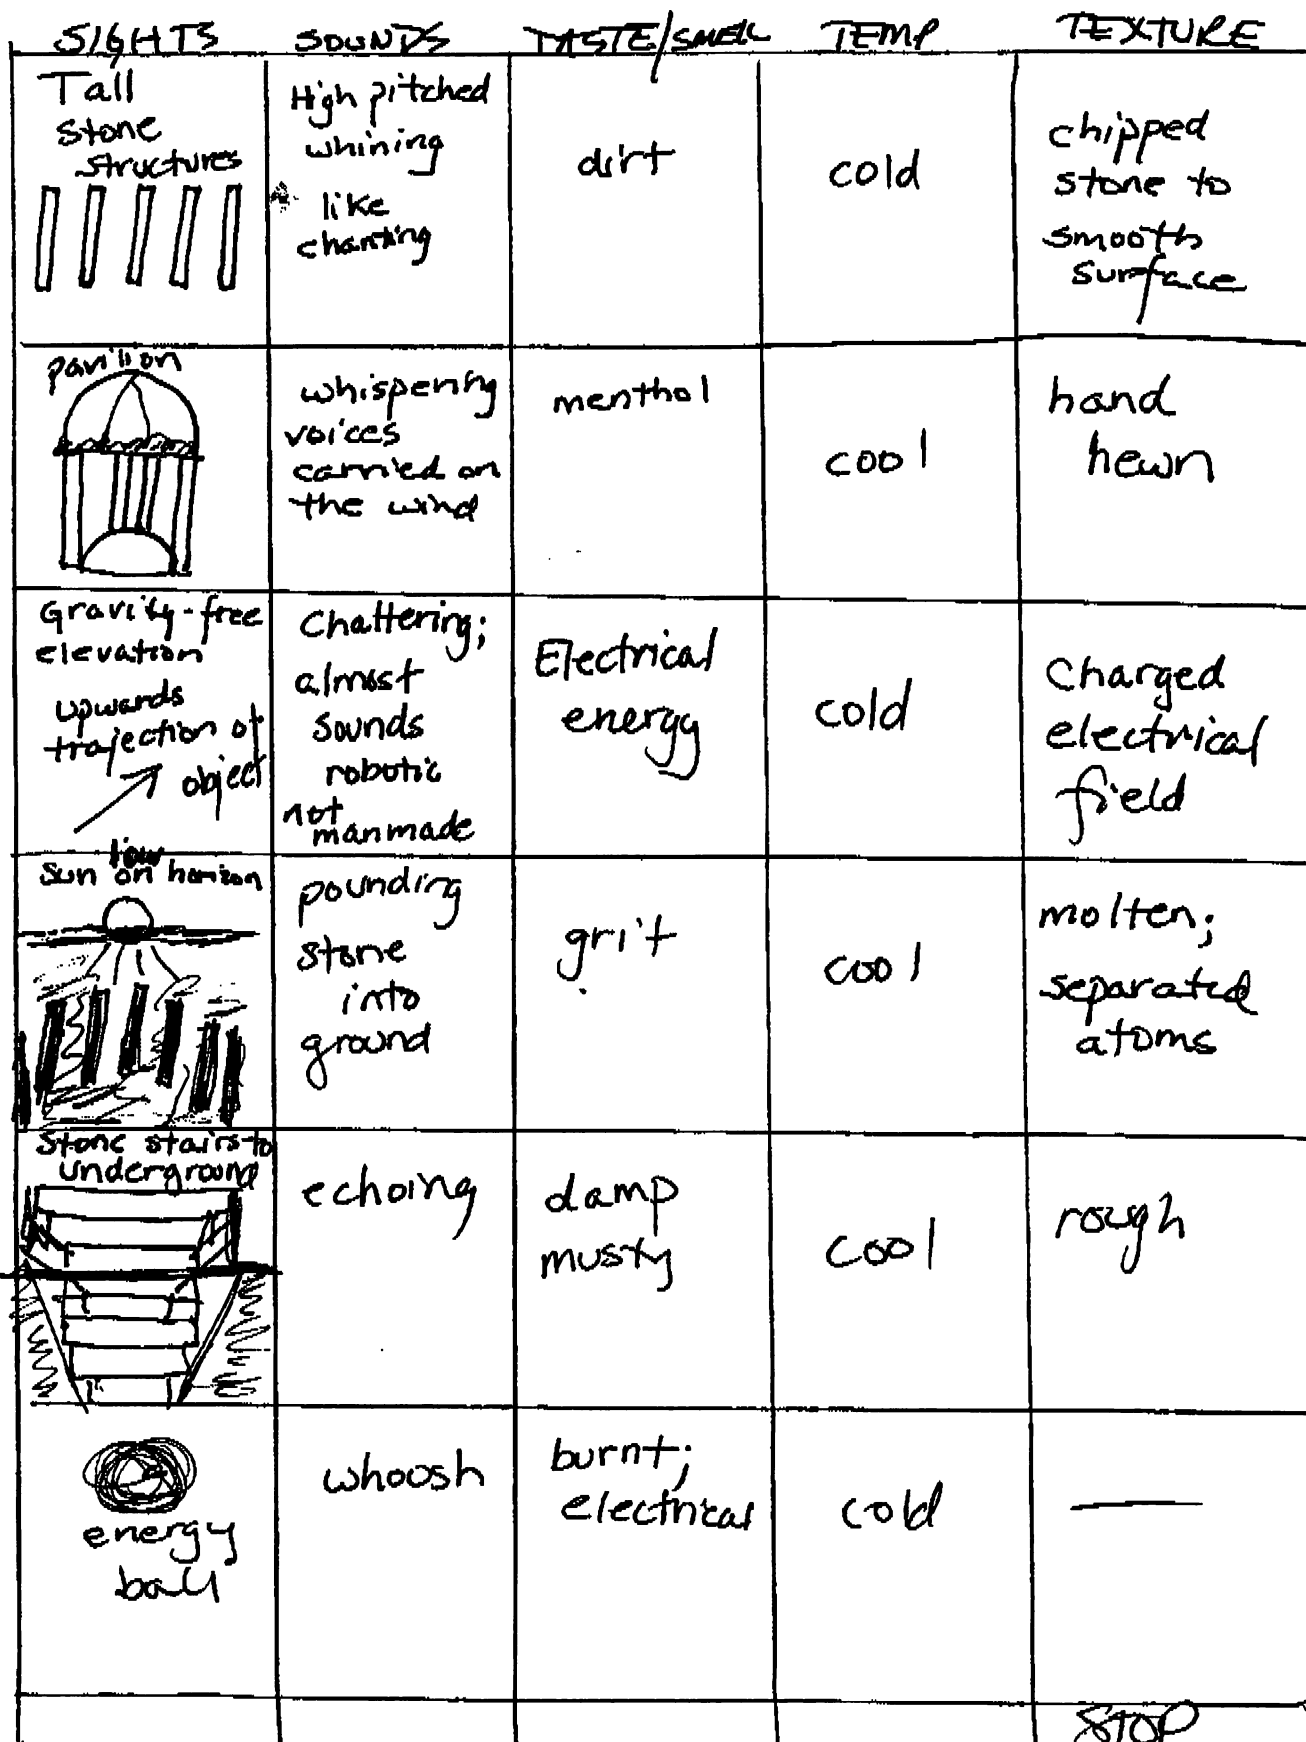 SIGHTS SOUNDS TASTE/SMELL TEMP TEXTURE
Tall
stone
structures
High pitched
whining
like
chanting
dirt
cold
chipped
stone to
smooth
surface
pavilion
whispering
voices
carried on
the wind
menthol
cool
hand
hewn
Gravity-free
elevation
upwards
trajection of
object
Chattering;
almost
sounds
robotic
not
manmade
Electrical
energy
cold
Charged
electrical
field
low
Sun on horizon
pounding
stone
into
ground
grit
cool
molten;
separated
atoms
Stone stairs to
underground
echoing
damp
musty
cool
rough
energy
ball
whoosh
burnt;
electrical
cold
—
STOP